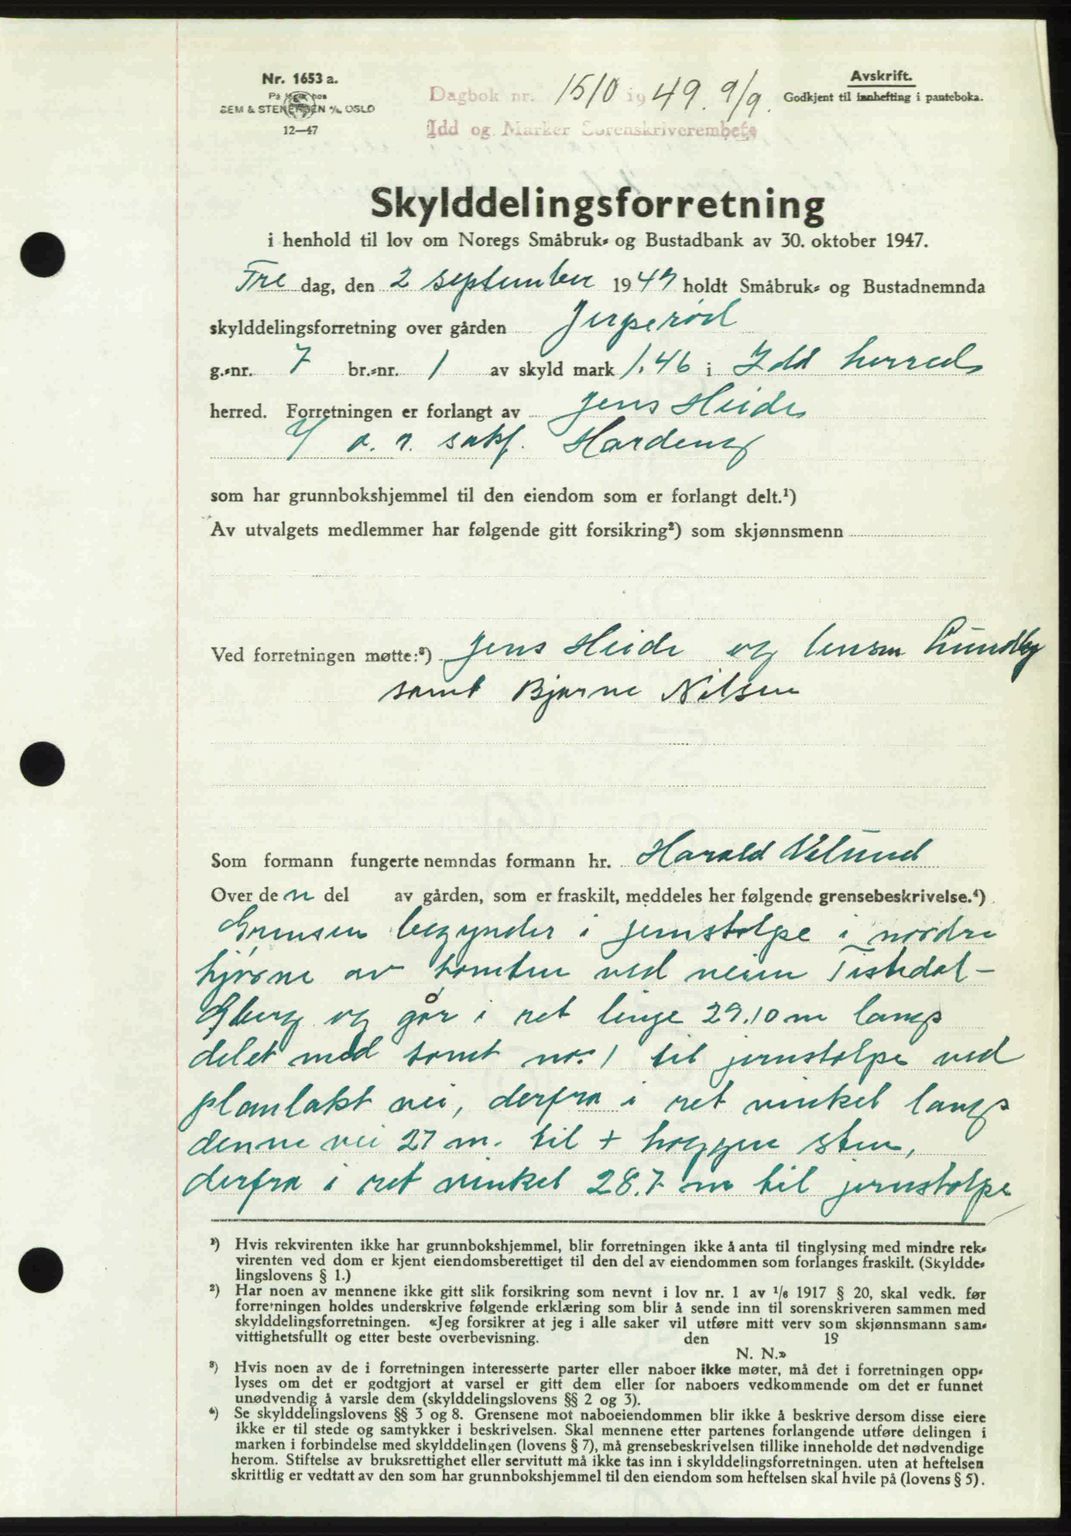 Nr. 1653 a.
På lager hos
SEM & STENERSEN A/S, OSLO
12—47
Dagbok nr. 1510 1949. 9/9.
Idd og Marker Sorenskriverembete
Avskrift.
Godkjent til innhefting i panteboka.
Skylddelingsforretning
i henhold til lov om Noregs Småbruk- og Bustadbank av 30. oktober 1947.
Fre dag, den 2 september 1949 holdt Småbruk- og Bustadnemnda
skylddelingsforretning over gården Jerperød
g.-nr. 7 br.-nr. 1 av skyld mark 1.46 i Idd herreds
herred. Forretningen er forlangt av Jens Heide
o.r. sakf. Hardeng
som har grunnbokshjemmel til den eiendom som er forlangt delt.¹)
Av utvalgets medlemmer har følgende gitt forsikring²) som skjønnsmenn
Ved forretningen møtte:³) Jens Heide og lensm Lundby
samt Bjarne Nilsen
Som formann fungerte nemndas formann hr. Harald Vilund
Over de n del av gården, som er fraskilt, meddeles her følgende grensebeskrivelse.⁴)
Grensen begynder i jernstolpe i nordre
hjørne av tomten ved veien Tistedal-
Gberg og går i ret linje 29.10 m langs
delet med tomt no: 1 til jernstolpe ved
planlakt vei, derfra i ret vinkel langs
denne vei 27 m. til + hoggen sten,
derfra i ret vinkel 28.7 m til jernstolpe
¹) Hvis rekvirenten ikke har grunnbokshjemmel, blir forretningen ikke å anta til tinglysing med mindre rek-
virenten ved dom er kjent eiendomsberettiget til den del av eiendommen som forlanges fraskilt. (Skyldde-
lingslovens § 1.)
²) Har noen av mennene ikke gitt slik forsikring som nevnt i lov nr. 1 av ¹/₆ 1917 § 20, skal vedk. før
forretningen holdes underskrive følgende erklæring som blir å sende inn til sorenskriveren sammen med
skylddelingsforretningen. «Jeg forsikrer at jeg i alle saker vil utføre mitt verv som skjønnsmann sam-
vittighetsfullt og etter beste overbevisning. den 19
N. N.»
³) Hvis noen av de i forretningen interesserte parter eller naboer ikke møter, må det i forretningen opp-
lyses om det er godtgjort at varsel er gitt dem eller for naboers vedkommende om det er funnet
unødvendig å varsle dem (skylddelingslovens §§ 2 og 3).
⁴) Se skylddelingslovens §§ 3 og 8. Grensene mot naboeiendommen blir ikke å beskrive dersom disse eiere
ikke er til stede og samtykker i beskrivelsen. Skal mennene etter partenes forlangende utføre delingen i
marken i forbindelse med skylddelingen (lovens § 7), må grensebeskrivelsen tillike inneholde det nødvendige
herom. Stiftelse av bruksrettighet eller servitutt må ikke tas inn i skylddelingsforretningen. uten at heftelsen
skrittlig er vedtatt av den som har grunnbokshjemmel til den eiendom som heftelsen skal hvile på (lovens § 5).